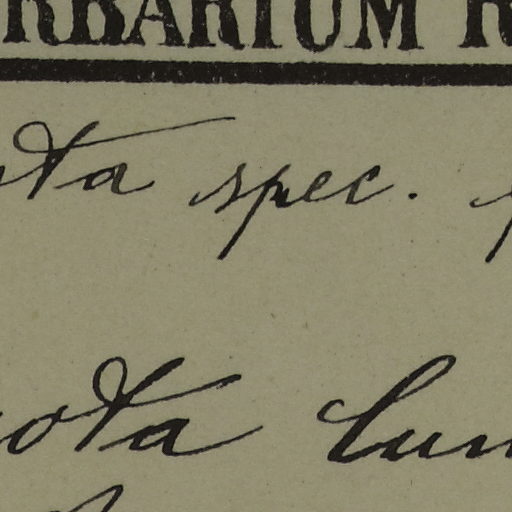 RBARIUM R
ta spec.
ota lun